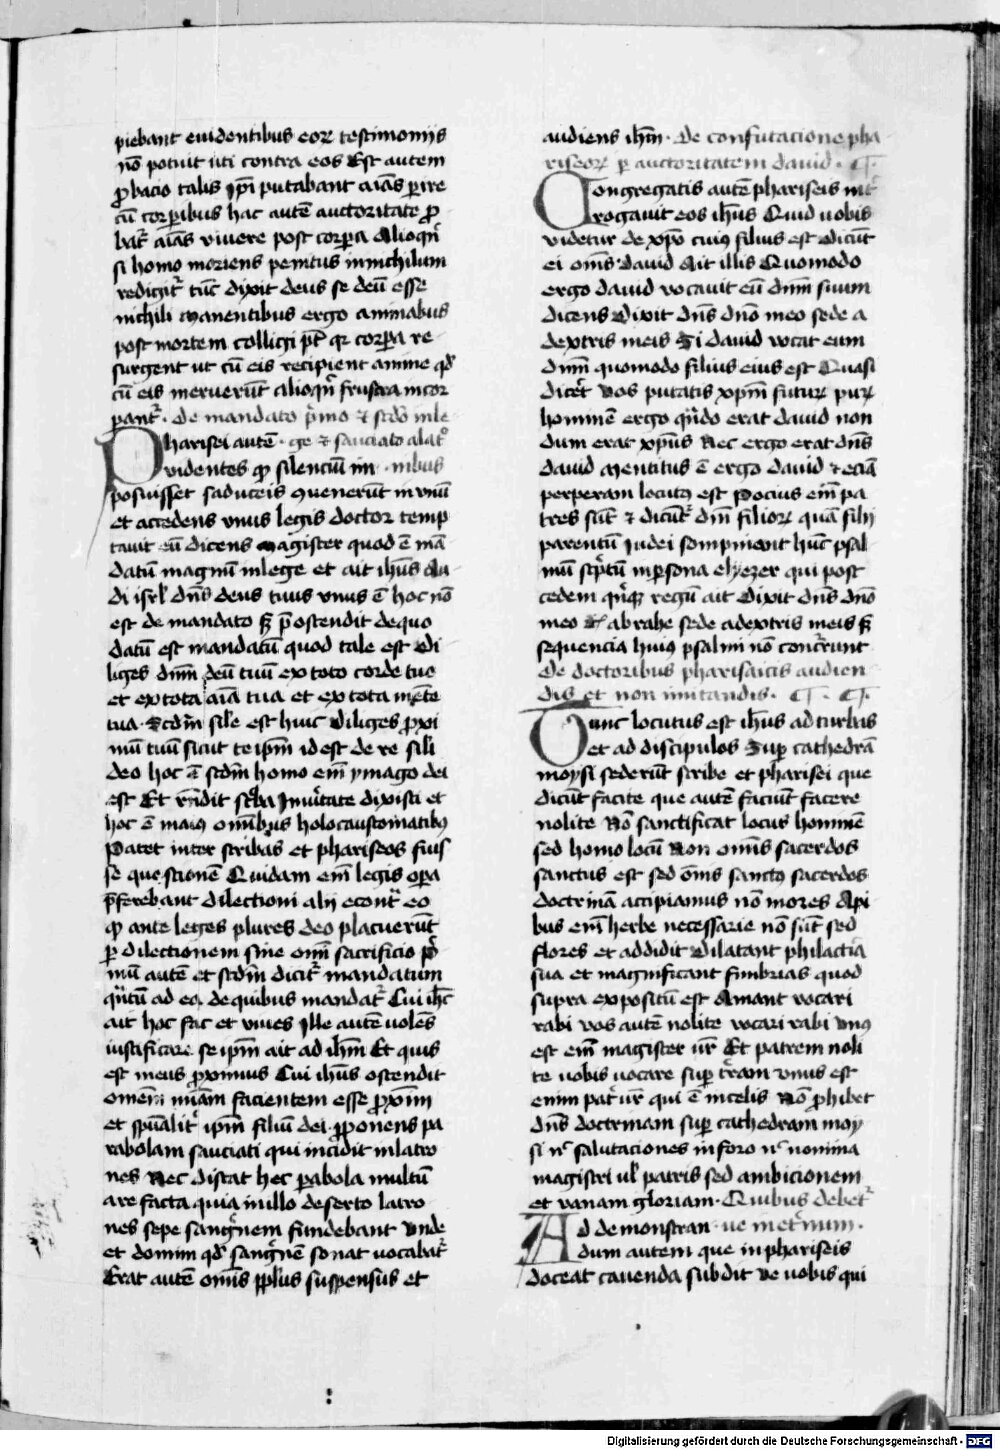 piebant euidentibus eorꝝ testimonijs
nō potuit uti contra eos Est autem
ꝓbacio talis ip̄i putabant aīas ꝑire
cū corꝑibus hac autē auctoritate ꝓ
bat᷑ aīas viuere post corꝑa Alioqn̄
si homo moriens penitus in nichilum
redigit᷑ tūc dixit deus se deū esse
nichili Manentibus ergo animabus
post mortem colligi pt̄ qꝛ corꝑa re
surgent ut cū eis recipient anime qd̓
cū eis meruerūt alioqn̄ frustra incor
pant᷑ . De mandato p̓mo ⁊ scd̓o in le
Pharisei autē . ge ⁊ sauciato a lat᷑o
videntes qꝙ silenciū im . nibus
posuisset saduceis ꝯuenerūt in vnū
et accedens vnus legis doctor temp
tauit eū dicens Magister quod ē mā
datū magnū in lege et ait ihūs Au
di isrl̄ dn̄s deus tuus vnus ē hoc nō
est de mandato sꝫ p̄ostendit de quo
datū est mandatū quod tale est Di
liges dnm̄ deū tuū ex toto corde tuo
et ex tota aīa tua et ex tota mēte
tua . Scdm̄ sil̄e est huic Diliges ꝓxi
mū tuū sicut te ip̄m id est de re sil̄i
deo hoc ē scdm̄ homo em̄ ymago dei
est Et rn̄dit sc̓ba In ūitate dixisti et
hoc ē maiꝯ om̄ibus holocaustomatibꝯ
Patet inter scribas et phariseos fuis
se questionē Quidam em̄ legis oꝑa
p̄ferebant dilectioni alij econt᷑ eo
qꝙ ante leges plures deo placuerūt
ꝑ dilectionem sine om̄i sacrificio p̓
mū autē et scdm̄ dicit᷑ mandatum
qn̄tū ad ea de quibus mandat᷑ Cui ihc̄
ait hoc fac et viues Ille autē uolēs
iustificare se ip̄m ait ad ihm̄ Et quis
est meus ꝓximus Cui ihūs ostendit
omem̄ mīam facientem esse ꝓxīm
et spūalit᷑ ip̄m filiū dei . ꝓponens pa
rabolam sauciati qui incidit in latro
nes Nec distat hec ꝑabola multū
a re facta quia in illo deserto latro
nes sepe sanguinem fundebant Unde
et domim qd̓ sanguinē sonat uocabat᷑
Erat autē om̄is ppl̄us suspensus et
audiens ihm̄ . De confutacione pha
riseorꝝ ꝑ auctoritatem dauid .
Congregatis autē phariseis int᷑
rogauit eos ihūs Quid uobis
videtur de xp̄o cuiꝯ filius est Dicūt
ei om̄s dauid Ait illis Quomodo
ergo dauid vocauit eū dnm̄ suum
dicens Dixit dn̄s dn̄o meo sede a
dextris meis Si dauid vocat eum
dnm̄ quomodo filius eius est Quasi
dicēt Vos putatis xpm̄ futuꝝ puꝝ
hominē ergo qn̄do erat dauid non
dum erat xpūs Nec ergo erat dn̄s
dauid Mentitus ē ergo dauid ⁊ eciā
perperam locutꝯ est Pocius em̄ pa
tres sūt ⁊ dicūt᷑ dn̄i filiorꝝ quā filij
parentū Iudei sompniant hūc psal
mū sc̓ptū in ꝑsona elyezer qui post
cedem qn̄qꝫ regū ait Dixit dn̄s dn̄o
meo abrahe sede a dextris meis sꝫ
sequencia huiꝯ psalmi nō concurrunt
De doctoribus pharisaicis audien
dis et non imitandis .
Tunc locutus est ihūs ad turbas
et ad discipulos Suꝑ cathedrā
moysi sederūt scribe et pharisei que
dicūt facite que autē faciūt facere
nolite Nō sanctificat locus hominē
sed homo locū Non om̄is sacerdos
sanctus est sed om̄s sanctꝯ sacerdos
doctrinā accipiamus nō mores Api
bus em̄ herbe necessarie nō sūt sed
flores et addidit Dilatant philactia
sua et magnificant fimbrias quod
supra expositū est Amant vocari
rabi vos autē nolite vocari rabi Unꝯ
est em̄ magister ur̄ Et patrem noli
te uobis uocare suꝑ t᷑ram vnus est
enim pat᷑ ur̄ qui ē in celis Nō ꝓhibet
dn̄s doctrinam suꝑ cathedram moy
si nc̄ salutaciones in foro nc̄ nomina
magistri ul̓ patris sed ambicionem
et vanam gloriam . Quibus debet᷑
Ad demonstran . ue met᷑num .
dum autem que in phariseis
doceat cauenda subdit Ve uobis qui
Digitalisierung gefördert durch die Deutsche Forschungsgemeinschaft - DFG